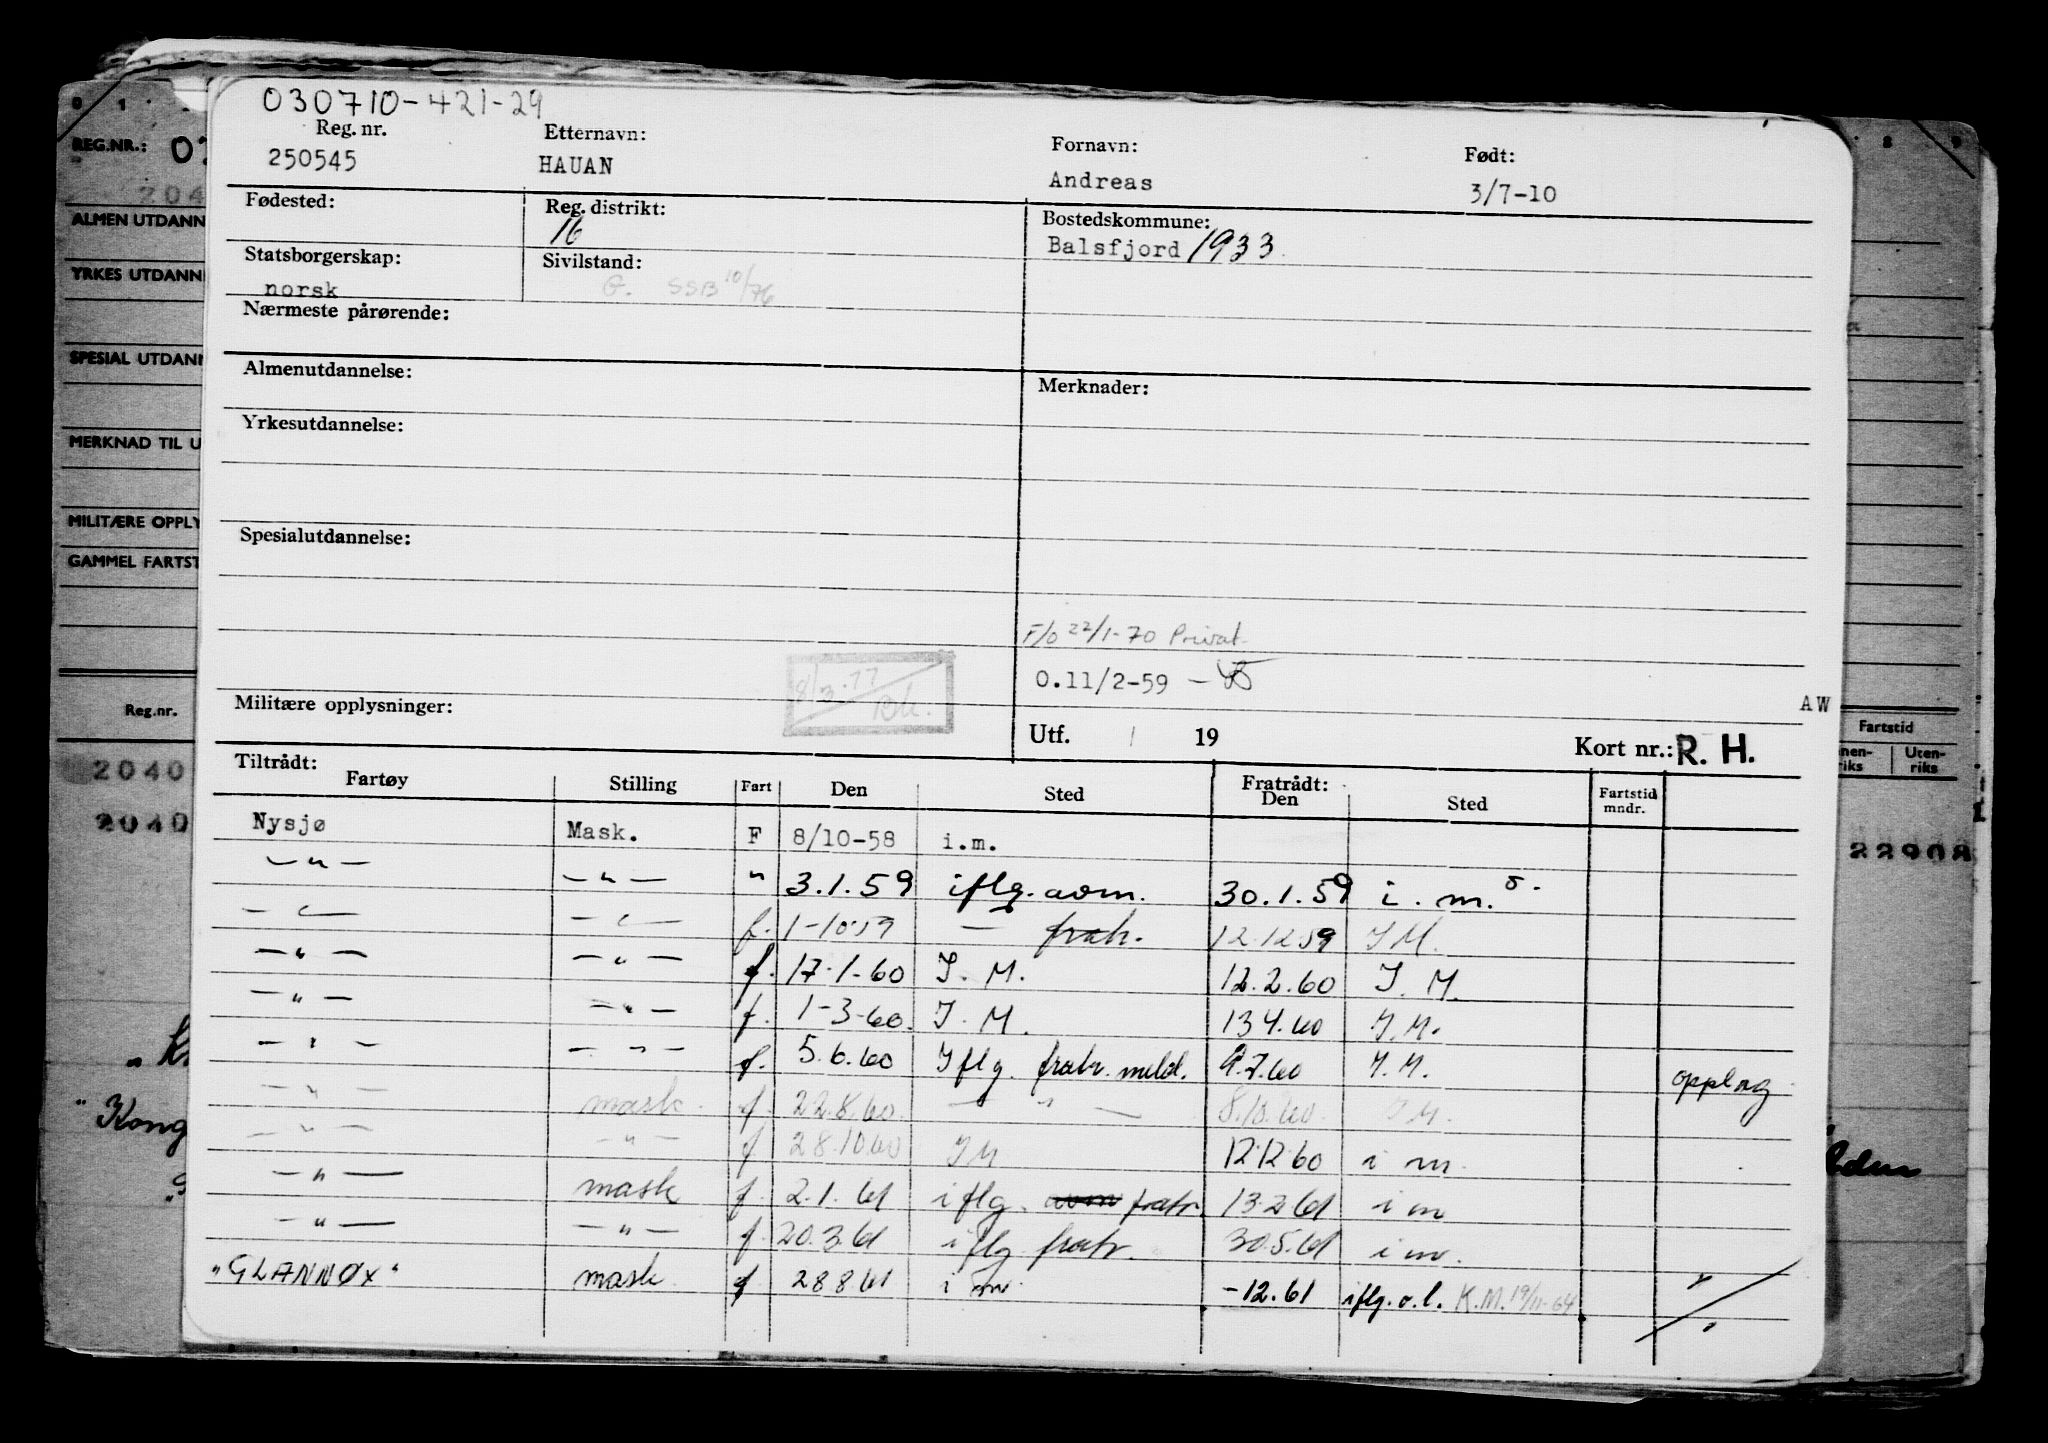 030710-421-29
Reg. nr. Etternavn: Fornavn: Født:
250545 HAUAN Andreas 3/7-10
Fødested: Reg. distrikt: Bostedskommune:
16 Balsfjord 1933
Statsborgerskap: Sivilstand:
norsk G. SSB 10/76
Nærmeste pårørende:
Almenutdannelse: Merknader:
Yrkesutdannelse:
Spesialutdannelse:
F/o 22/1-70 Privat
8/3-77 0.11/2-59
Militære opplysninger: AW
Utf. 19 Kort nr.: R. H.
Tiltrådt: Fratrådt:
Fartøy Stilling Fart Den Sted Den Sted Fartstid mndr.
Nysjø Mask. F 8/10-58 i.m.
— " — — " — " 3.1.59 iflg. avm. 30.1.59 i. m.
— " — — " — f. 1-10-59 — fratr. 12.12.59 I M.
— " — — " — f. 17.1-60 I. M. 12.2.60 I. M.
— " — — " — f. 1-3-60. I. M. 13.4.60 I. M.
— " — — " — f. 5.6.60 Iflg. fratr. meld. 9.7.60 I. M. opplag
— " — mask. f. 22.8.60. — " — 8.10.60. I M.
— " — — " — f. 28.10.60 I M 12.12.60 i m.
— " — mask f. 2.1.61 iflg. avm fratr. 13.2.61 i m
— " — — " — f. 20.3.61 iflg fratr. 30.5.61 i m.
"GLANNØY" mask f 28 8 61 i m -12.61 iflg. o.l. K.M. 19/11-64
REG.NR.:
ALMEN UTDANN
YRKES UTDANN
SPESIAL UTDANN
MERKNAD TIL U
MILITÆRE OPPLY
GAMMEL FARTST
Reg.nr. Fartstid
nen-riks Uten-riks
2040
2040 22908
"Kong